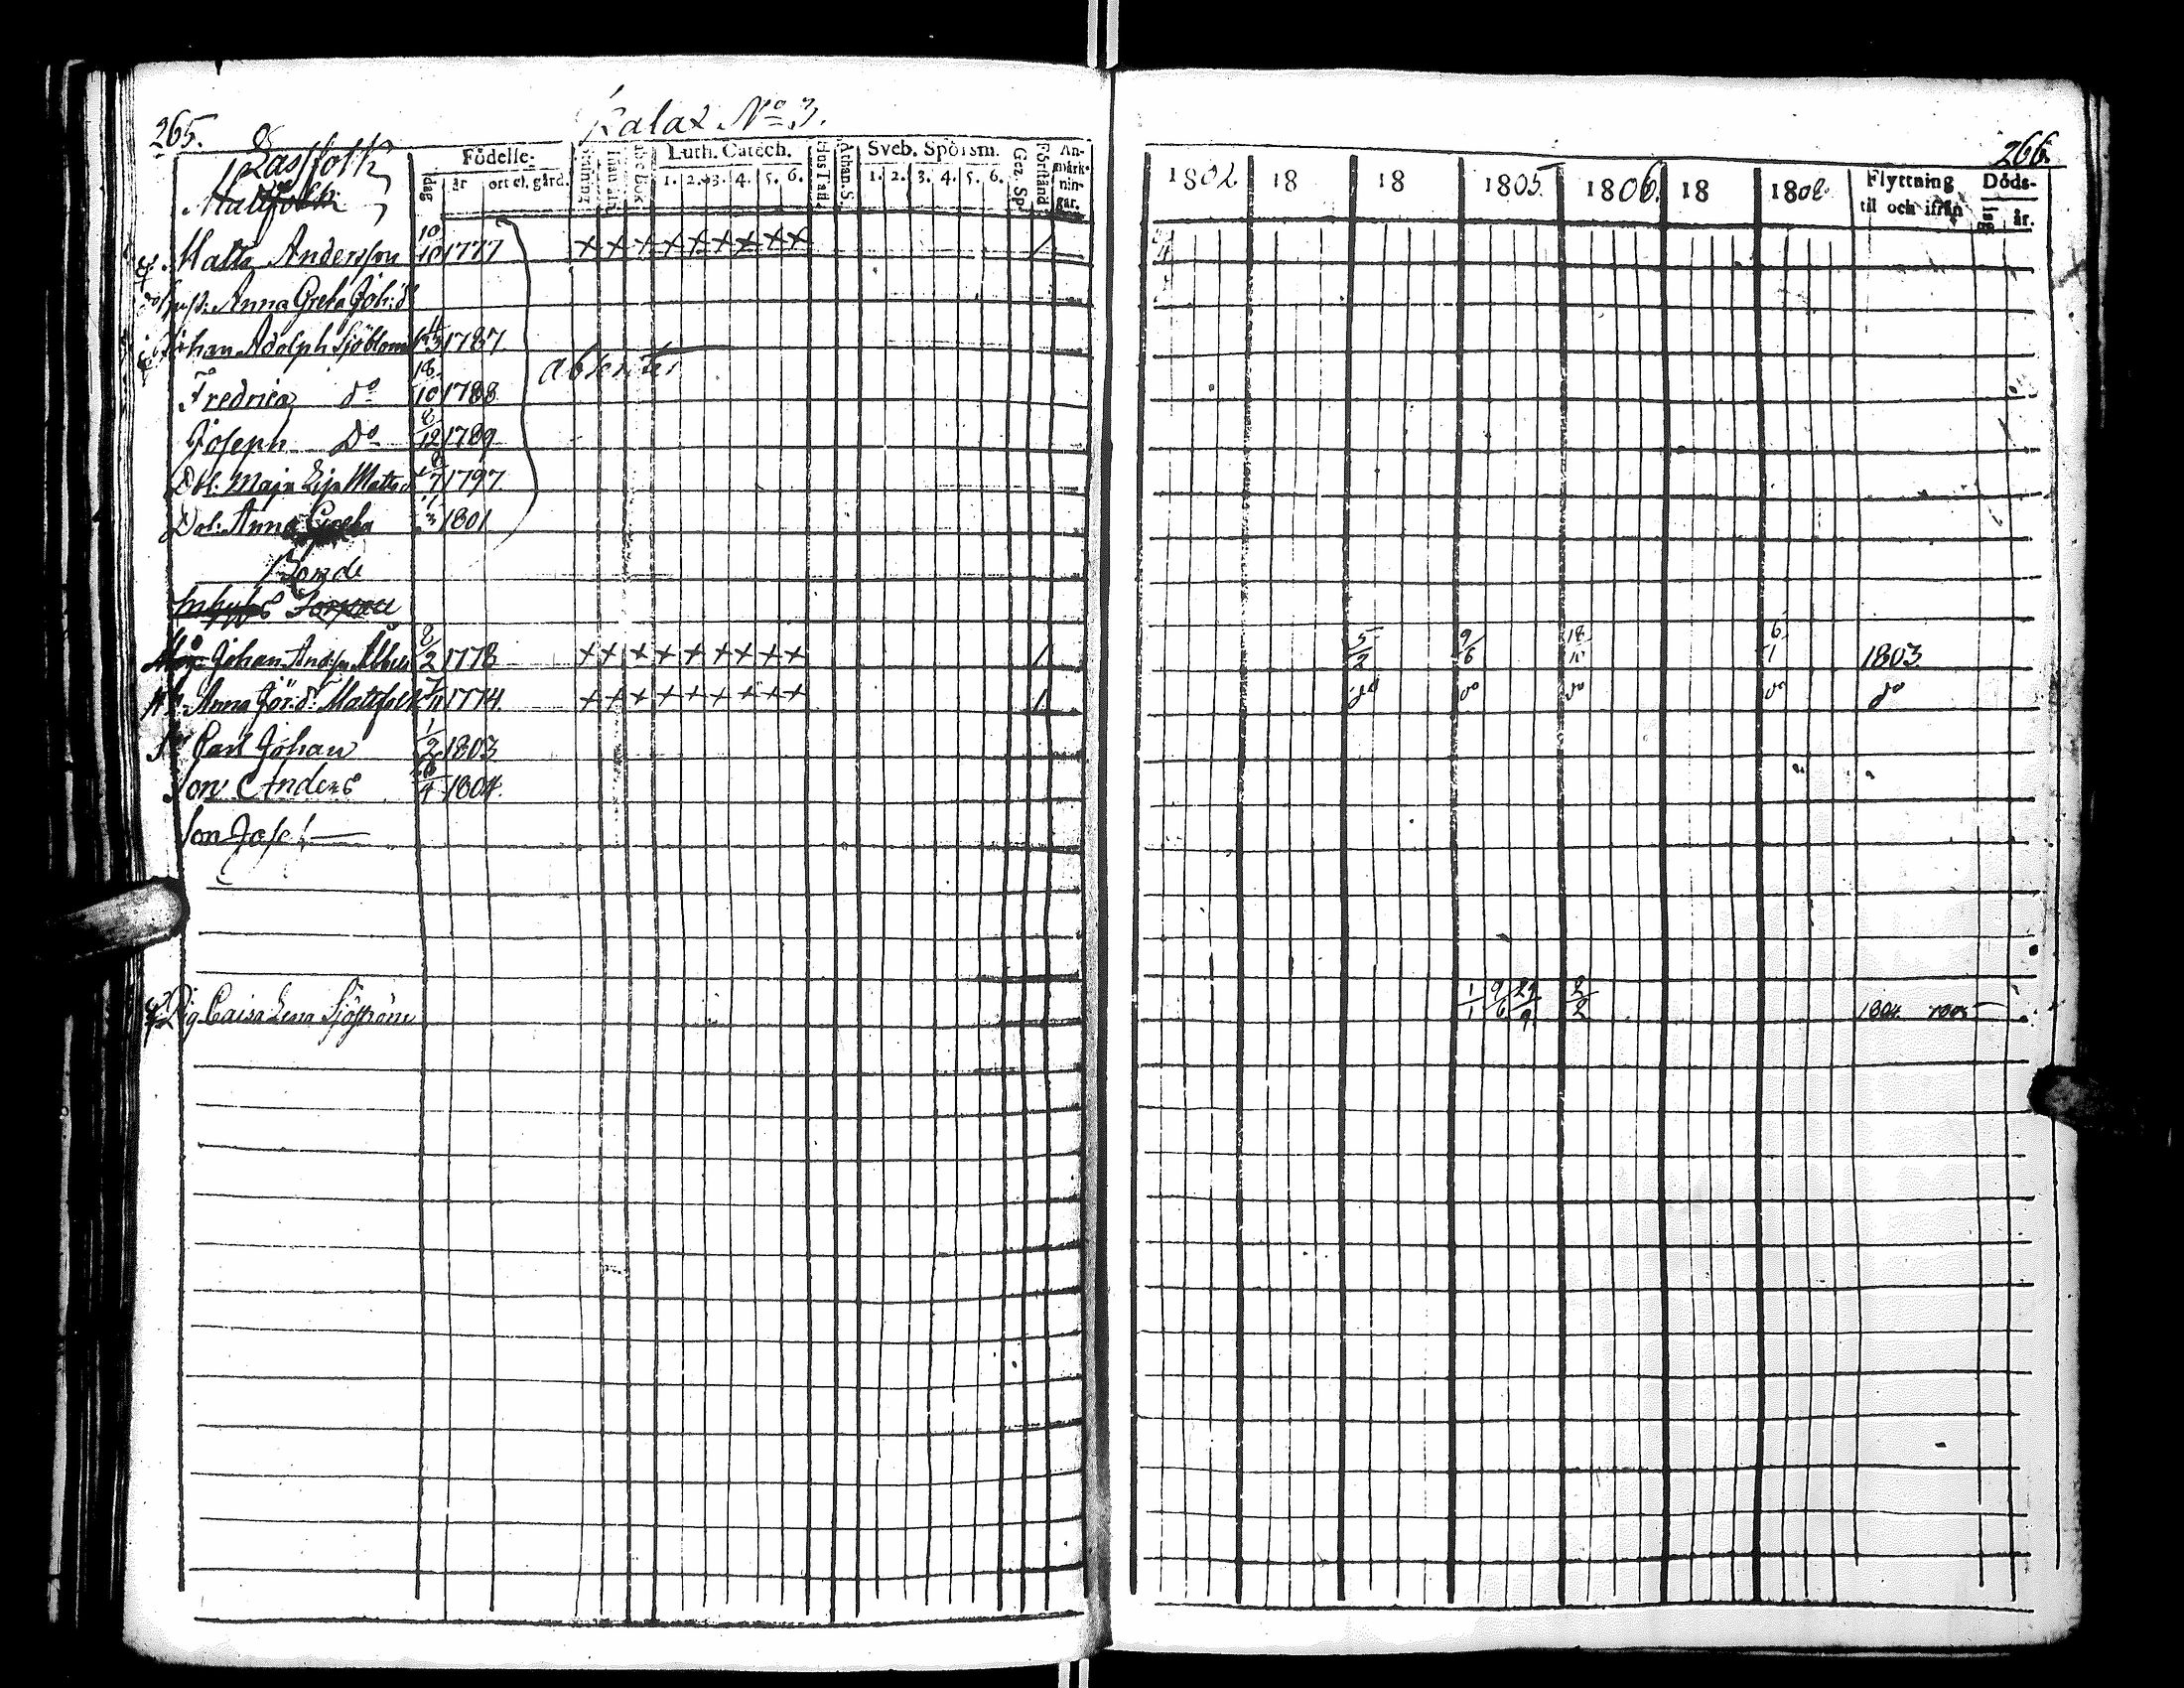 265.
Kalax No 3.
Mattfolk
Födelse-
dag
år
ort el. gård.
Luth. Catech.
1. 2. 3. 4. 5. 6.
Athan. S.
Sveb. Spörsm.
1. 2. 3. 4. 5. 6.
Gez. Sp.
Förstånd
An-
märk-
nin-
gar.
Matts Andersson 10/10 1777 x x x x x x x x x 1
Hust. Anna Greta Joh:dr
Johan Adolph Sjöblom 1787
absentes
Fredrica do 18/10 1788
Joseph Do 8/12 1789
Dot. Maja Lisa Matsd 1797
Dot. Anna Greta 1801
Bonde
Johan Anders. 2 1773 x x x x x x x x x 1
Anna Mattfolk 1774 x x x x x x x x x 1
Carl Johan 1/2 1803
Son Anders 4 1804
Son Josef
Pig. Caisa Lena Sjöström
266.
1802. 18 18 1805. 1806. 18 1808.
Flyttning
til och ifrån
Döds-
dag
år.
5/2 9/6 18/11 6/1 1803
do do do do do
1/1 9/6 29/9 2/2 1804 1805